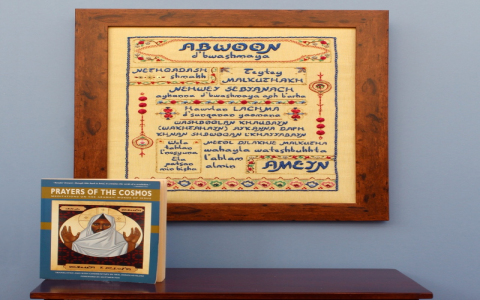 ABWOON
d'bwashmaya
NETHQADASH
shmakh
Teytey
MALKUTHAKH
NEHWEY SEBYANACH
aykanna d'bwashmaya aph b'arha
Hawvlan LACHMA
d'sunqanan yaomana
WASHBOQLAN KHAUBAYN
(WAKHTAHAYN) AYKANA DAPH
KHNAN SHBWOQAN L'KHAYYABAYN
Wela
tahlan
l'nesyuna
Ela
patzan
min bisha
METOL DILAKHIE MALKUTHA
wahayla wateshbukhta
l'ahlam
almin
AMEYN
PRAYERS OF THE COSMOS
MEDITATIONS ON THE ARAMAIC WORDS OF JESUS